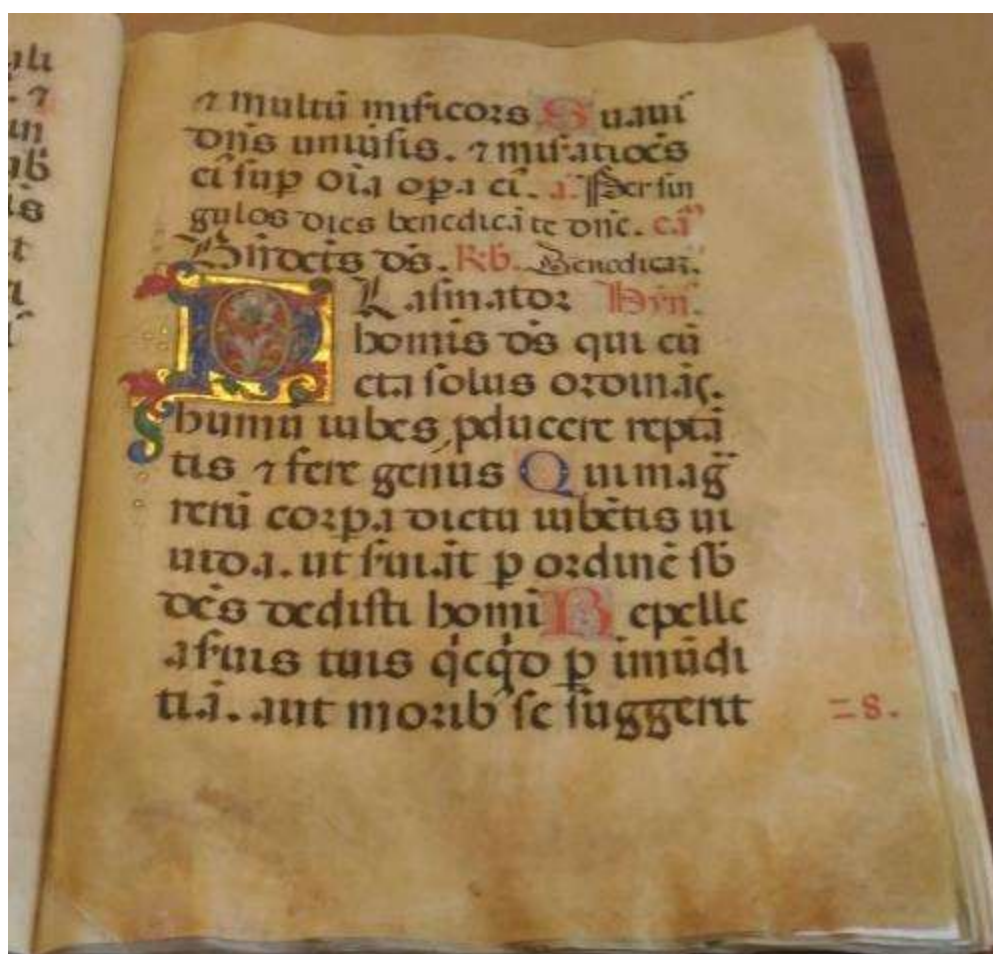 uli
⁊
un
ib᷒
is
t
⁊ multū miſicors Suaui᷒
dn̄s uniu̇ſis. ⁊ miſ̓atiōēs
eī ſup oīa opa eī. a. Per ſin
gulos dies benedicāte dn̄e. c.
dē. Rb. Benedicaṁ.
Plaſmator Hyn̄.
homīs dē qui cū
cta ſolus ordināſ.
humū iubes pducere reptā
tis ⁊ fere genus Qui mag̅
rerū corpa dictu iubētis ui
uida. ut ſ̓uiāt p ordinē ſb̄
dēs dediſti homī Repelle
a ſ̓uis tuis qͥcqͥd p imūdi
tiā. aut morib ſe ſuggerit
= s.